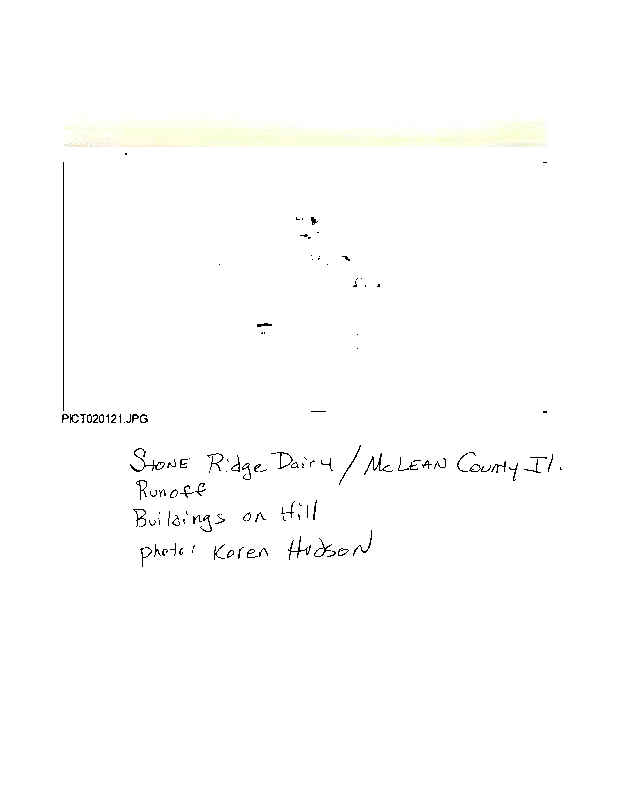 PICT020121.JPG
Stone Ridge Dairy / McLean County Il.
Runoff
Buildings on Hill
photo: Karen Hudson